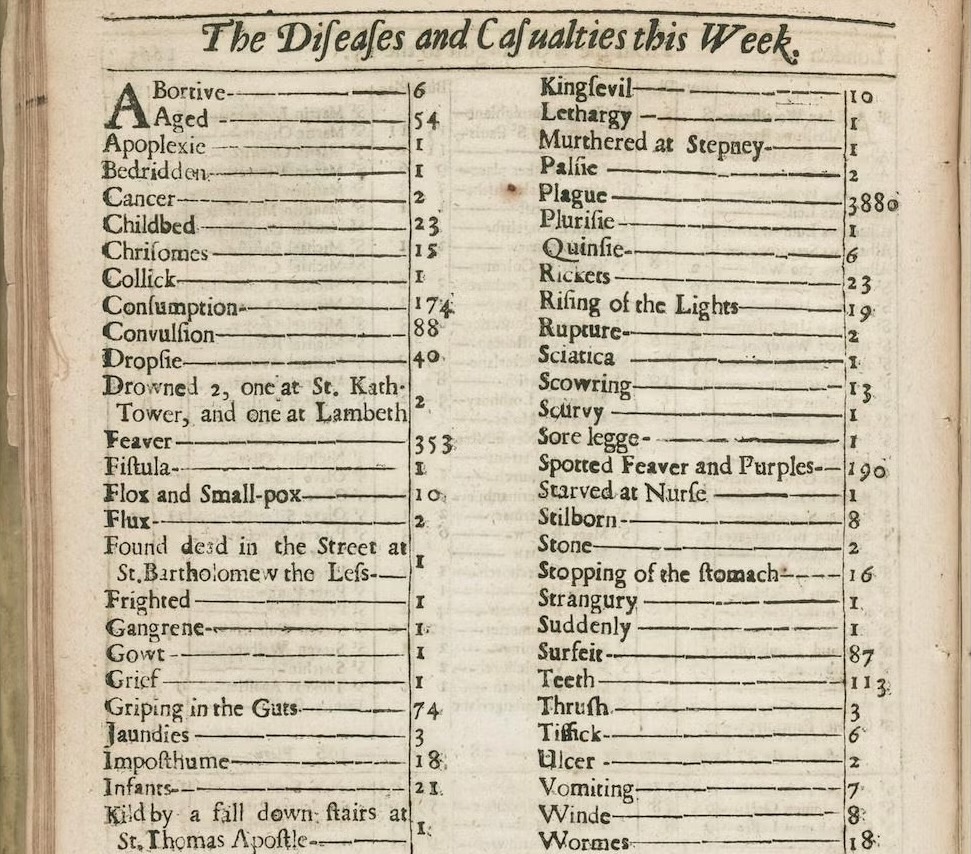 The Diſeaſes and Caſualties this Week.
ABortive 6
Aged 54
Apoplexie 1
Bedridden 1
Cancer 2
Childbed 23
Chriſomes 15
Collick 1
Conſumption 174
Convulſion 88
Dropſie 40
Drowned 2, one at St. Kath-
Tower, and one at Lambeth 2
Feaver 353
Fiſtula 1
Flox and Small-pox 10
Flux 2
Found dead in the Street at
St. Bartholomew the Leſs 1
Frighted 1
Gangrene 1
Gowt 1
Grief 1
Griping in the Guts 74
Jaundies 3
Impoſthume 18
Infants 21
Kild by a fall down ſtairs at
St. Thomas Apoſtle 1
Kingſevil 10
Lethargy 1
Murthered at Stepney 1
Palſie 2
Plague 3880
Pluriſie 1
Quinſie 6
Rickets 23
Riſing of the Lights 19
Rupture 2
Sciatica 1
Scowring 13
Scurvy 1
Sore legge 1
Spotted Feaver and Purples 190
Starved at Nurſe 1
Stilborn 8
Stone 2
Stopping of the ſtomach 16
Strangury 1
Suddenly 1
Surfeit 87
Teeth 113
Thruſh 3
Tiſſick 6
Ulcer 2
Vomiting 7
Winde 8
Wormes 18